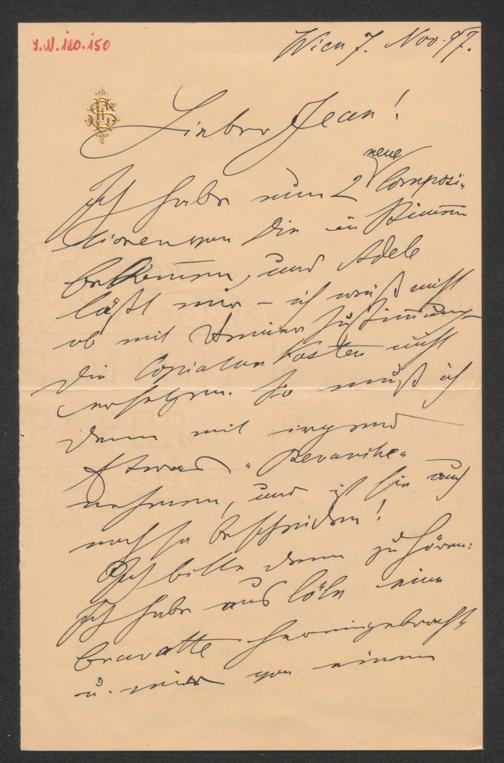 I.N. 120.150
Wien 7. Nov. 97.
Lieber Jean!
Ich habe nun 2 neue Composi-
tionen von Dir in Stimmen
bekommen, und Adele
läßt mir – ich weiß nicht
ob mit Deiner Zustimmung –
die Copiatur Kosten nicht
ersetzen. So muß ich
denn mit irgend
Etwas „Revanche“
nehmen, und ist sie auch
noch so bescheiden!
Ich bitte denn zu hören:
Ich habe aus Cöln eine
Cravatte heimgebracht
u. mir von einem